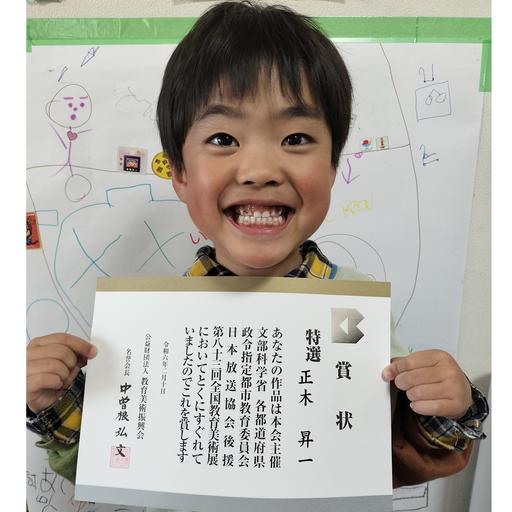 賞状
特選 正木 昇一
あなたの作品は本会主催
文部科学省 各都道府県
政令指定都市教育委員会
日本放送協会後援
第八十三回全国教育美術展
においてとくにすぐれて
いましたのでこれを賞します
令和六年二月十日
公益財団法人 教育美術振興会
名誉会長 中曽根弘文